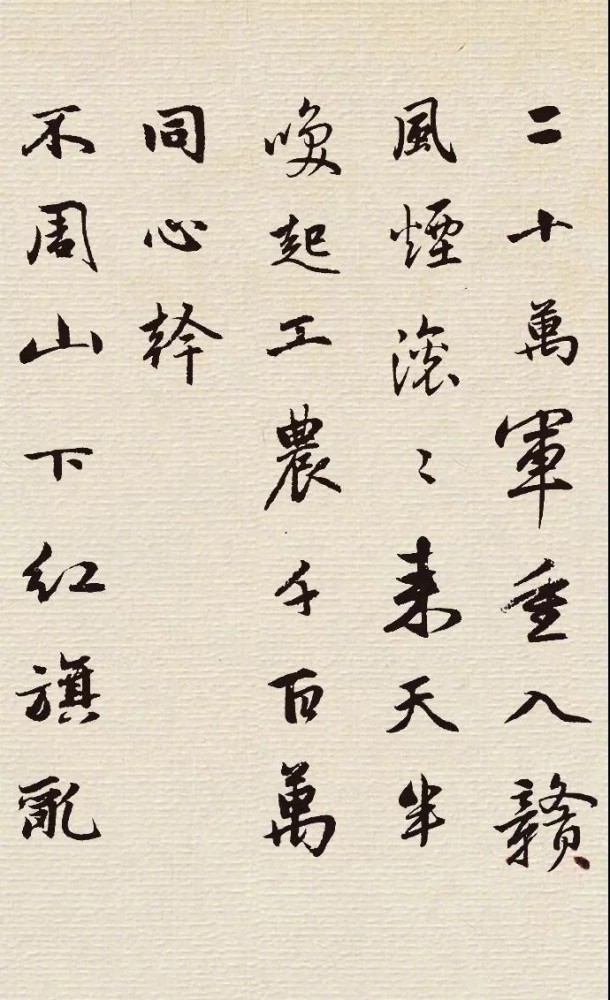 二十萬軍重入贛
風煙滚〻来天半
喚起工農千百萬
同心幹
不周山下红旗亂